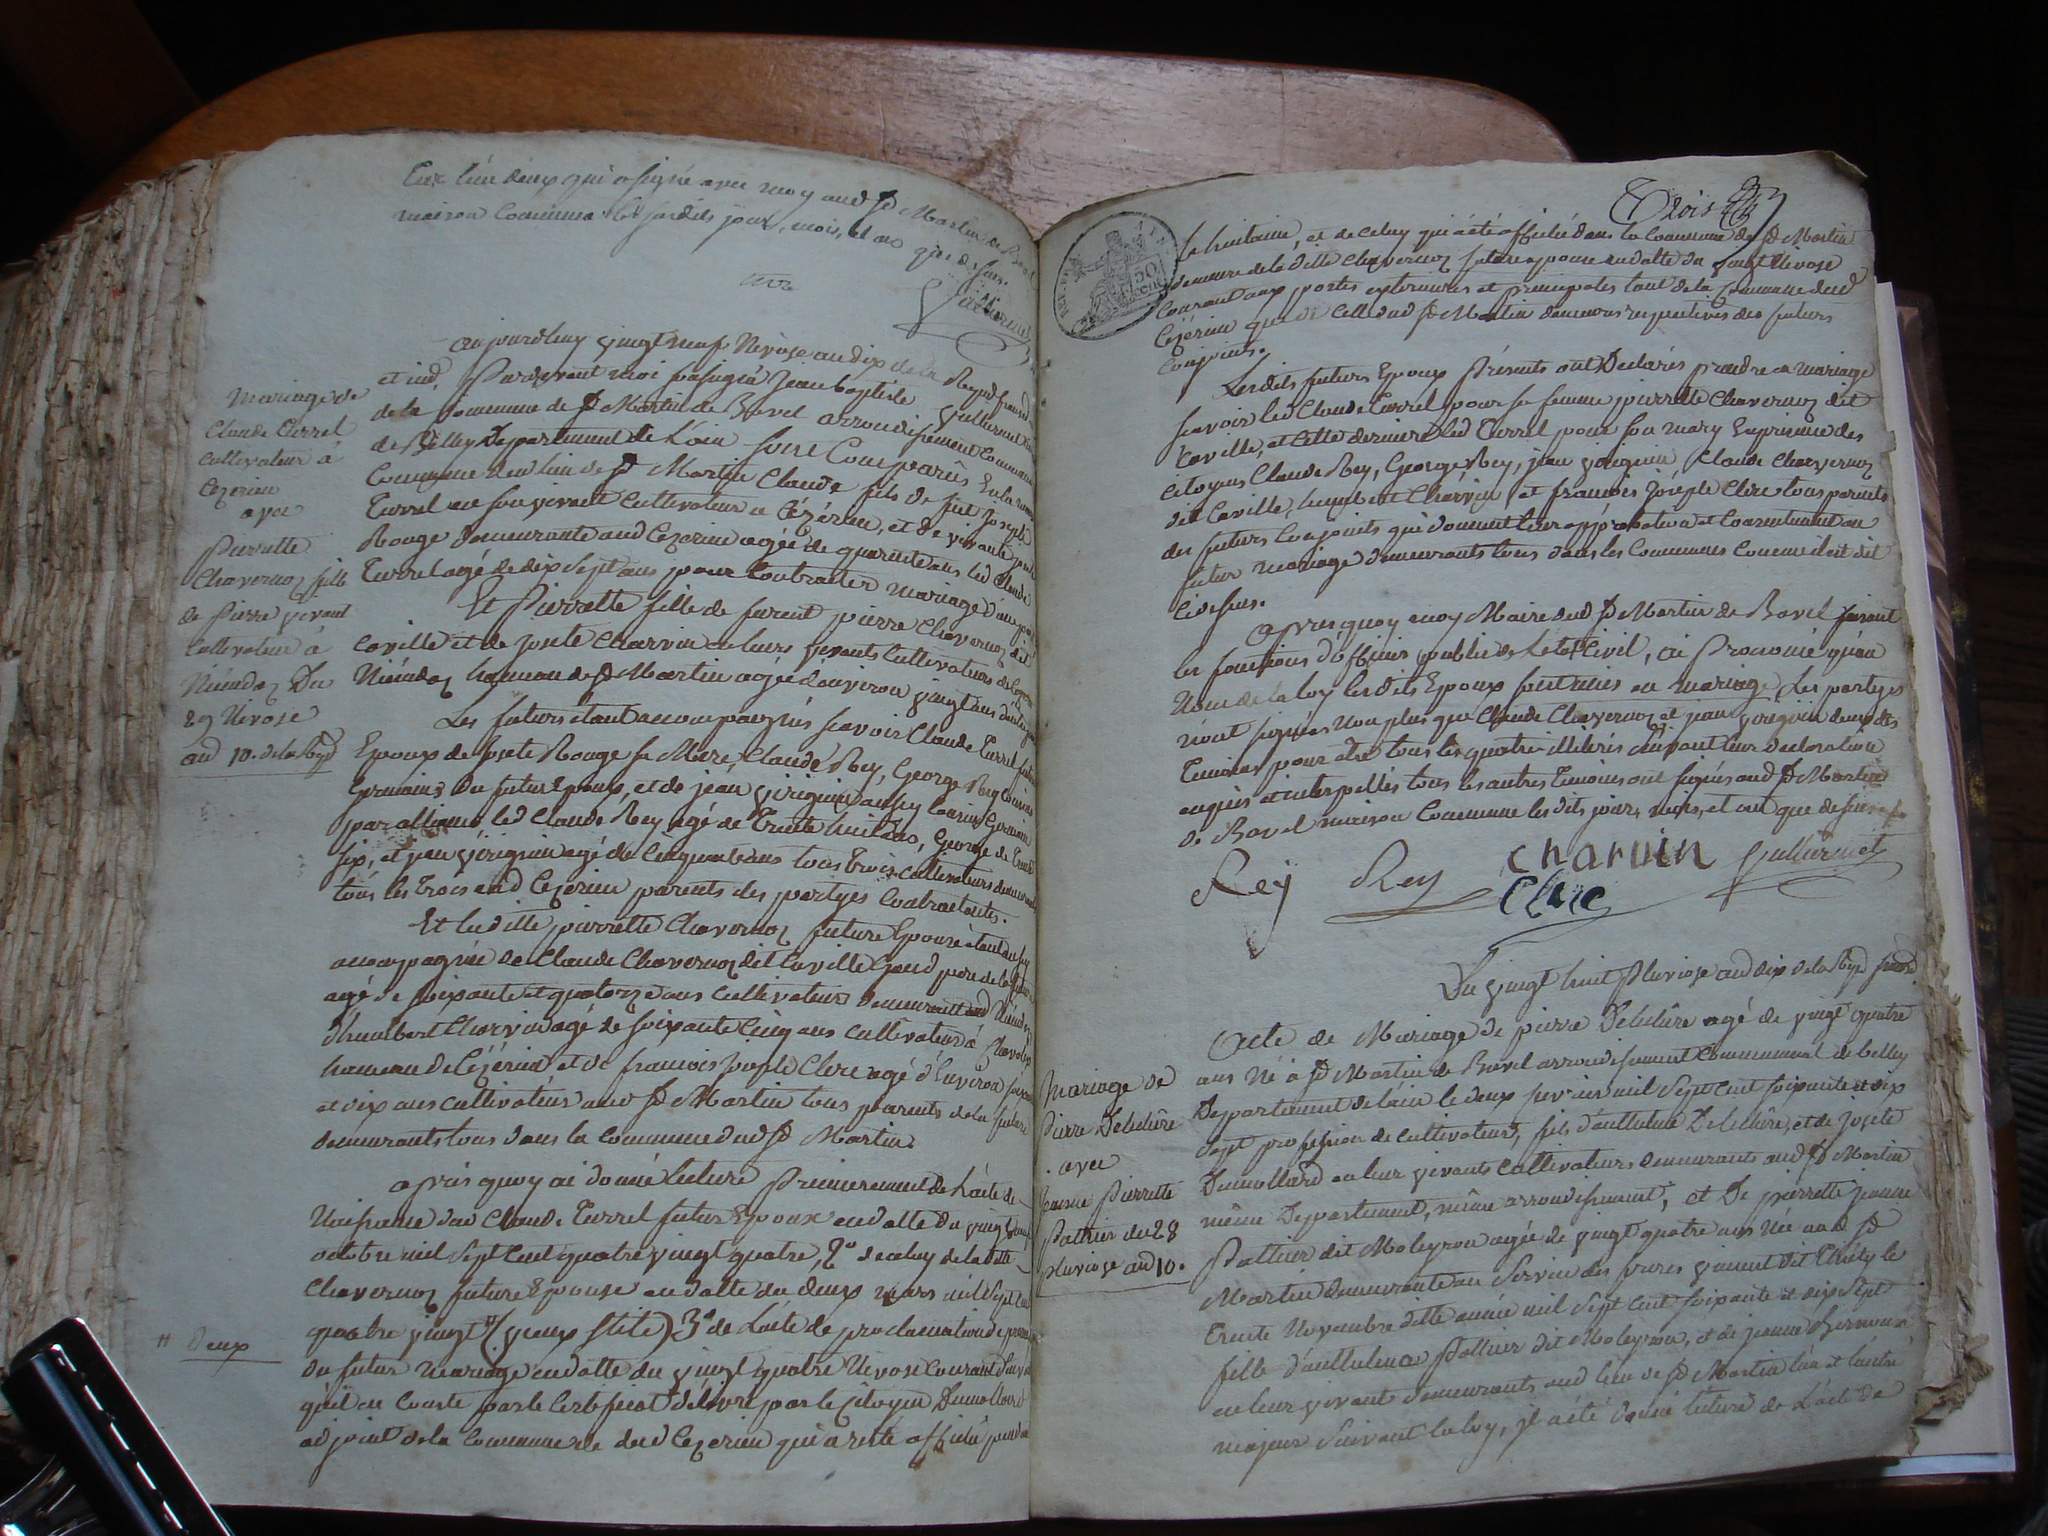 L'un d'eux qui a signé avec moy aud St Martin de Bavel
maison Commune lesdits jour, mois, et an que dessus.
Mariage de
Claude Turrel
Cultivateur à
Cezerieu
avec
Pierrette
Chavernoz fille
de Pierre vivant
Cultivateur à
Niéudaz Du
29 Nivose
an 10. de la Rep
aujourd'huy vingt neuf Nivose an dix de la Repub française
et ind. Pardevant moi soussigné Jean baptiste
de la Commune de St Martin de Bavel arrondissement Communal
de Belley Departement de L'ain sont Comparus En la maison
Commune dud lieu de St Martin Claude fils de feu Joseph
Turrel en son vivant Cultivateur à Cézérieu, et de vivante josete
Rouge demeurante aud Cezerieu agée de quarante ans led Claude
Turrel agé de dix sept ans pour Contracter mariage d'une part
Et Pierrette fille de furent pierre Chavernoz dit
Caville et de Josete Charvin en leurs vivants Cultivateurs
Niéudaz hameau de St Martin agée d'environ vingt ans d'autre part
Les futurs étant accompagnés scavoir Claude Turrel futur
Epoux de Josete Rouge sa Mere, Claude Rey, George Rey Cousins
Germains du futur Epoux, et de jean girignin aussy Cousin Germain
par alliance led Claude Rey agé de Trente huit ans, George de Trente
six, et jean girignin agé de Cinquante ans tous Trois cultivateurs demeurants
tous les Trois aud Cezerieu parents des partyes Contractantes.
Et laditte pierrette Chavernoz future Epouse étant aussy
accompagnée de Claude Chavernoz dit Caville Grand pere de la future
agé de soixante et quatorze ans cultivateur demeurant aud Niéudaz
d'humbert Charvin agé de soixante Cinq ans cultivateur à
hameau de Cézérieu et de francois joseph Clerc agé d'Environ soixante
et dix ans cultivateur aud St Martin tous parents de la future
demeurants tous dans la Commune dud St Martin.
apres quoy ai donné lecture Premierement de L'acte de
Naissance dud Claude Turrel futur Epoux en datte du vingt
octobre mil sept Cent quatre vingt quatre, 2° de celuy de la ditte
Chavernoz future Epouse en datte du deux mars mil sept Cent
quatre vingt // (vieux stile) 3° de L'acte de proclamation de
du futur mariage en datte du vingt quatre Nivose Courant
qu'il en Conste par le Certificat délivré par le Citoyen Dumollard
adjoint de la Commune de dud Cezerieu qui a resté affiché pendant
// Deux
Trois
50
la huitaine, et de celuy qui a été affiché dans la Commune de St Martin
demeure de la ditte Chavernoz future epouse en datte du vingt Nivose
Courant aux portes exterieures et principales tant de la Commune dud
Cezerieu que de Celle dud St Martin demeures respectives des futurs
Conjoints.
Lesdits futurs Epoux Présents ont Déclarés prendre en mariage
scavoir led Claude Turrel pour sa femme pierrette Chavernoz dit
Caville, et Cette derniere led Turrel pour son mary En presence des
Citoyens Claude Rey, George Rey, jean girignin, Claude Chavernoz
dit Caville, humbert Charvin, et francois Joseph Clerc tous parents
des futurs Conjoints qui donnent leur approbation et Consentement au
futur mariage demeurants tous dans les Communes Comme il est dit
Cidessus.
Apres quoy moy Maire dud St Martin de Bavel faisant
les fonctions d'officier public de L'état Civil, ai Prononcé qu'au
Nom de la loy lesdits Epoux sont unis en mariage, Les partyes
n'ont signées non plus que Claude Chavernoz et jean girignin deux des
Temoins pour être tous les quatre illiterés suivant leur declaration
enquis et interpellés tous les autres Temoins ont signés aud St Martin
de Bavel maison Commune lesdits jour, mois, et an que dessus
Rey Rey charvin
Clerc
Du vingt huit Pluviose an dix de la Rep franc
Mariage de
Pierre Delechère
avec
Jeanne Pierrette
Pattier du 28
pluviose an 10.
Acte de Mariage de pierre Delechère agé de vingt quatre
ans Né à St Martin de Bavel arrondissement Communal de belley
Departement de l'ain le deux fevrier mil sept cent soixante et dix
sept profession de cultivateur, fils d'anthelme Delechère, et de Josete
Dumollard en leur vivants Cultivateurs demeurants aud St Martin
même Departement, même arrondissement, et De pierrette jeanne
Pattier dit Moleyron agée de vingt quatre ans Née aud St
Martin demeurante au Service des freres vincent dit le
Trente Novembre ditte année mil sept cent soixante et dix sept
fille d'anthelme Pattier dit Moleyron, et de jeanne
en leur vivant demeurants aud lieu de St Martin L'un et L'autre
majeur suivant la loy, il a été donné lecture de L'acte de